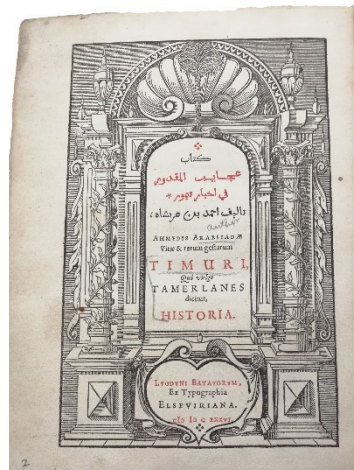 كتاب
عجايب المقدور
في اخبار تيمور
تاليف احمد بن عربشاه
AHMEDIS ARABSIADÆ
Vitæ & rerum gestarum
TIMURI,
Qui vulgo
TAMERLANES
dicitur,
HISTORIA.
LVGDVNI BATAVORVM,
Ex Typographia
ELSEVIRIANA.
2